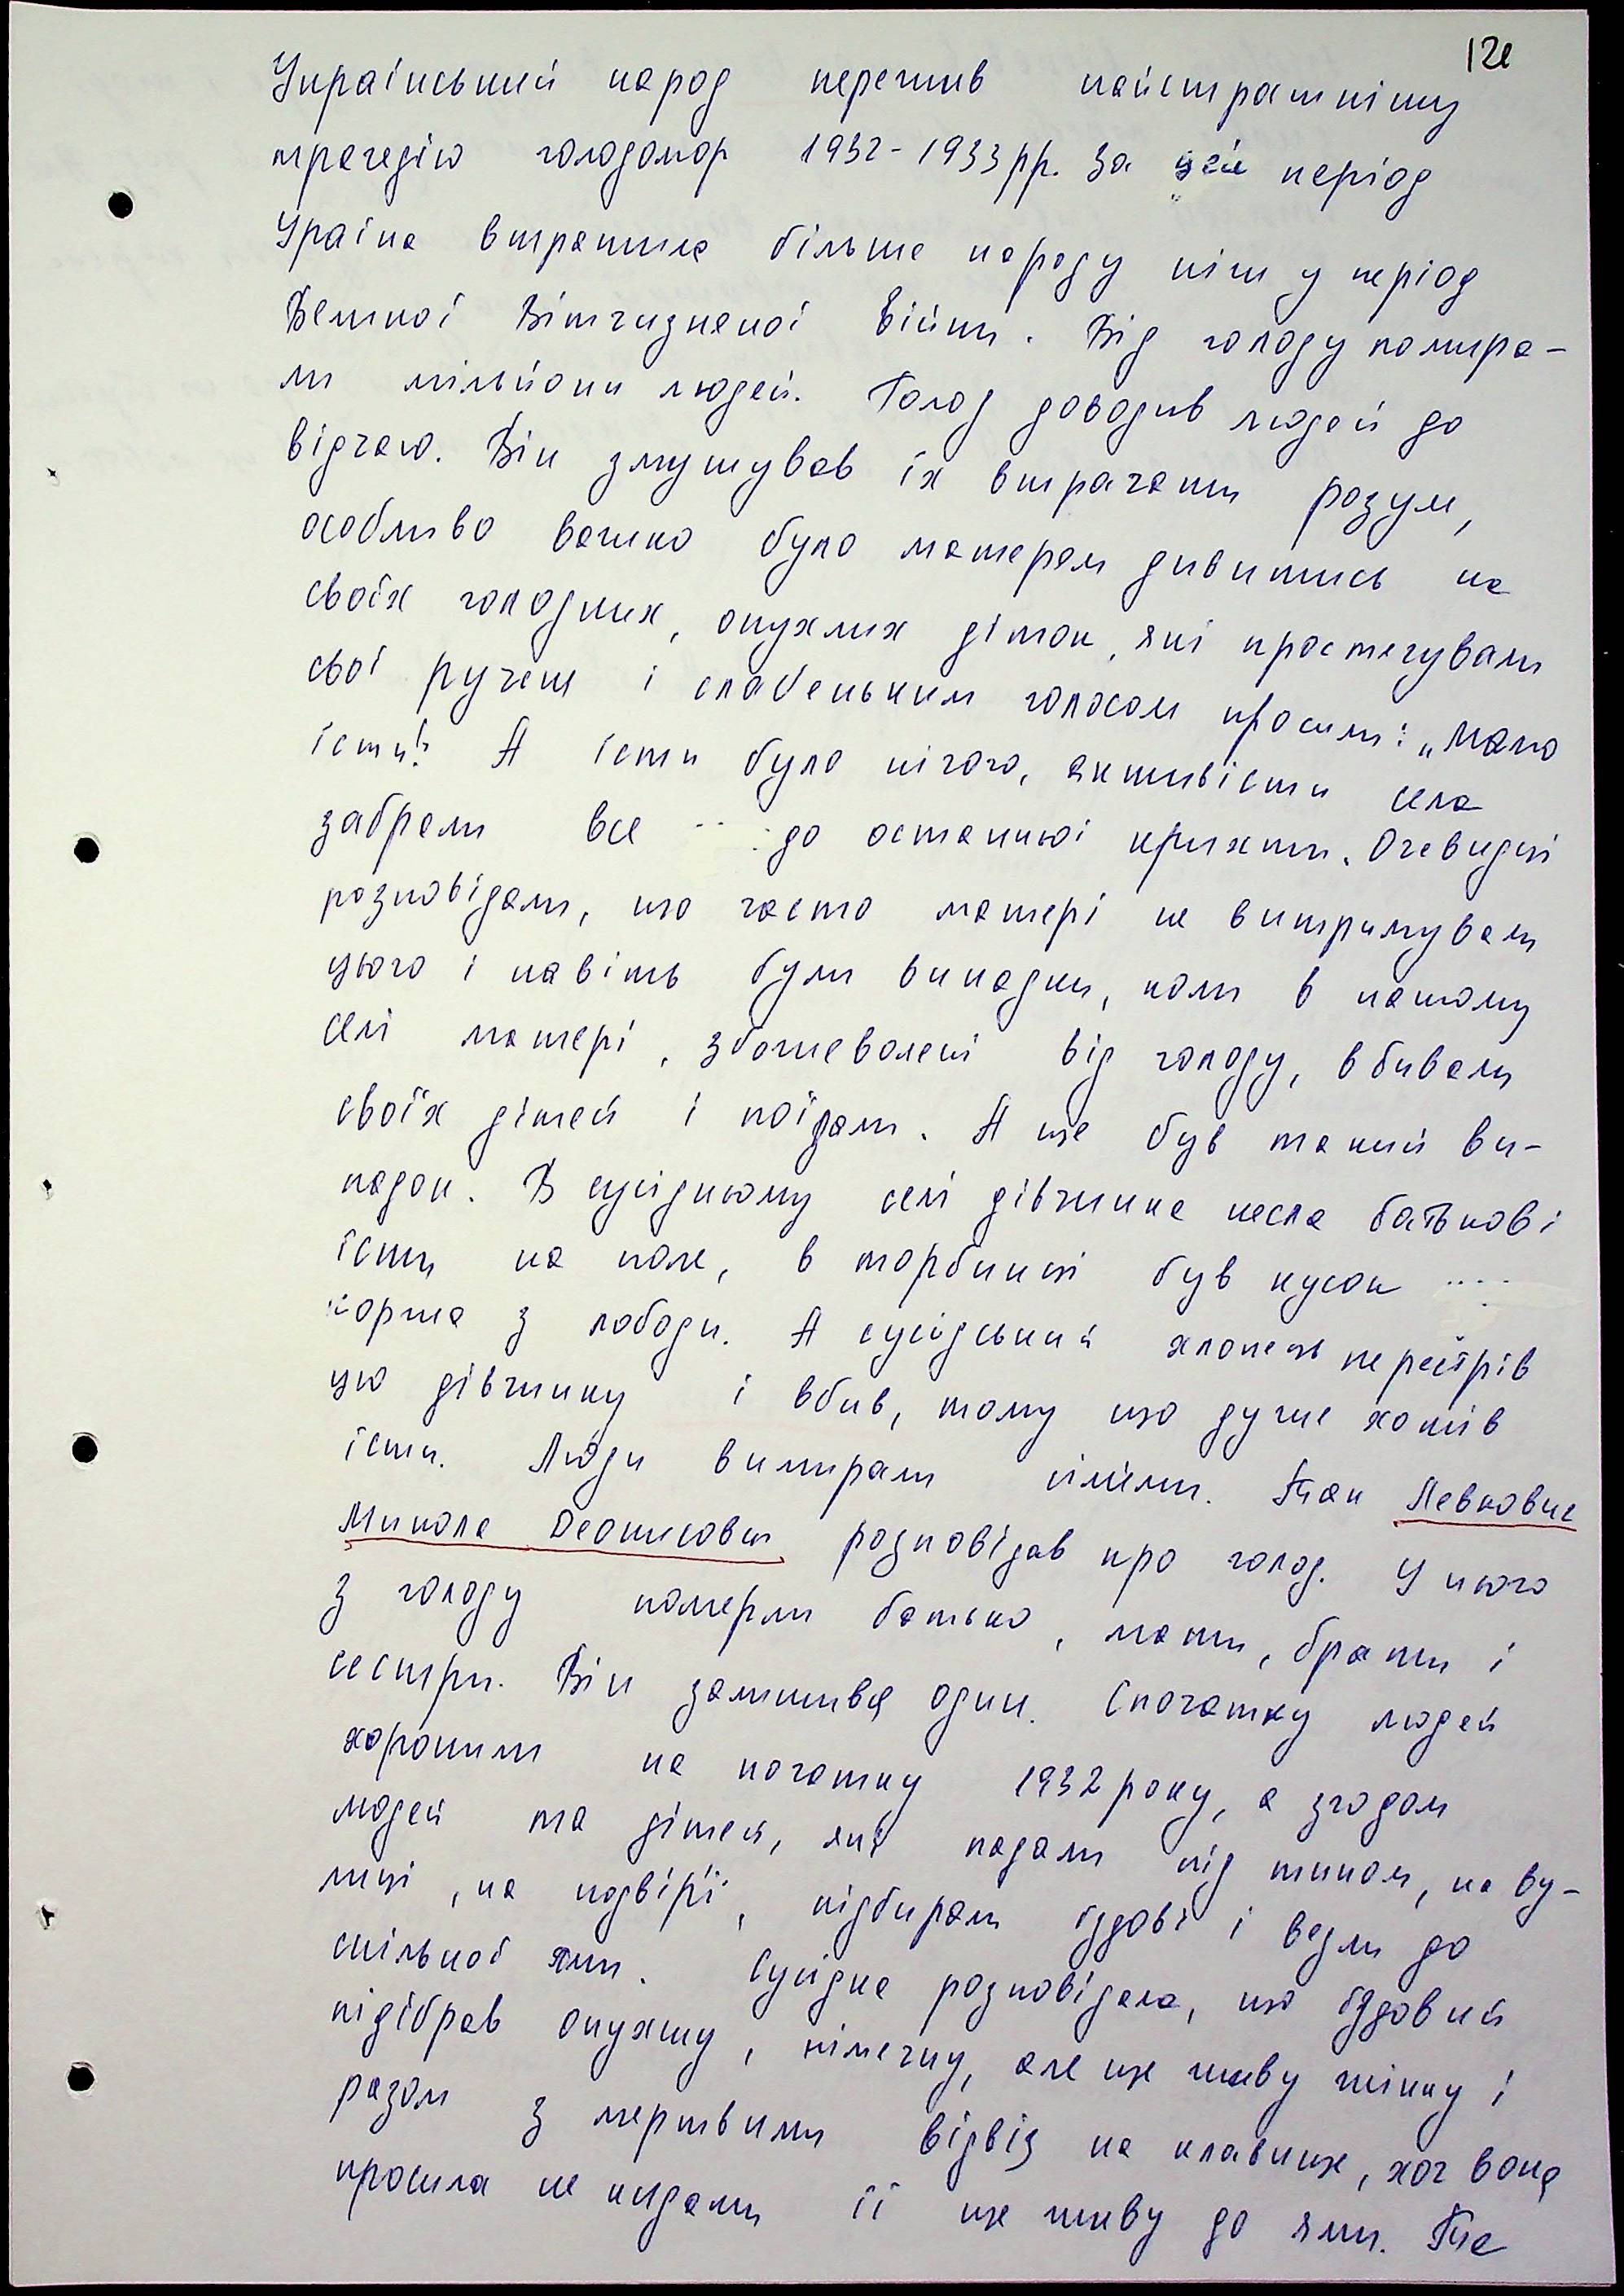 12
Український народ пережив найстрашнішу
трагедію голодомор 1932-1933 рр. За цей період
Україна втратила більше народу ніж у період
Великої Вітчизняної Війни. Від голоду помира-
ли мільйони людей. Голод доводив людей до
відчаю. Він змушував їх втрачати розум,
особливо важко було матерям дивитись на
своїх голодних, опухлих діток, які простягували
свої рученя і слабеньким голосом просили: „Мамо
їсти!" А їсти було нічого, активісти села
забрали все до останньої крихти. Очевидці
розповідали, що часто матері не витримували
цього і навіть були випадки, коли в нашому
селі матері, збожеволені від голоду, вбивали
своїх дітей і поїдали. А ще був такий ви-
падок. В сусідньому селі дівчинка несла батькові
їсти на поле, в торбинці був кусок
коржа з лободи. А сусідський хлопець перестрів
цю дівчинку і вбив, тому що дуже хотів
їсти. Люди вимирали сім'ями. Так Левковис
Микола Деонисович розповідав про голод. У нього
з голоду померли батько, мати, брати і
сестри. Він залишився один. Спочатку людей
хоронили на початку 1932 року, а згодом
людей та дітей, які падали під тином, на ву-
лиці, на подвір'ї, підбирали їздові і везли до
спільної ями. Сусідка розповідала, що їздовий
підібрав опухшу, німечну, але ще живу жінку і
разом з мертвими відвіз на кладвище, хоч вона
просила не кидати її ще живу до ями. Та